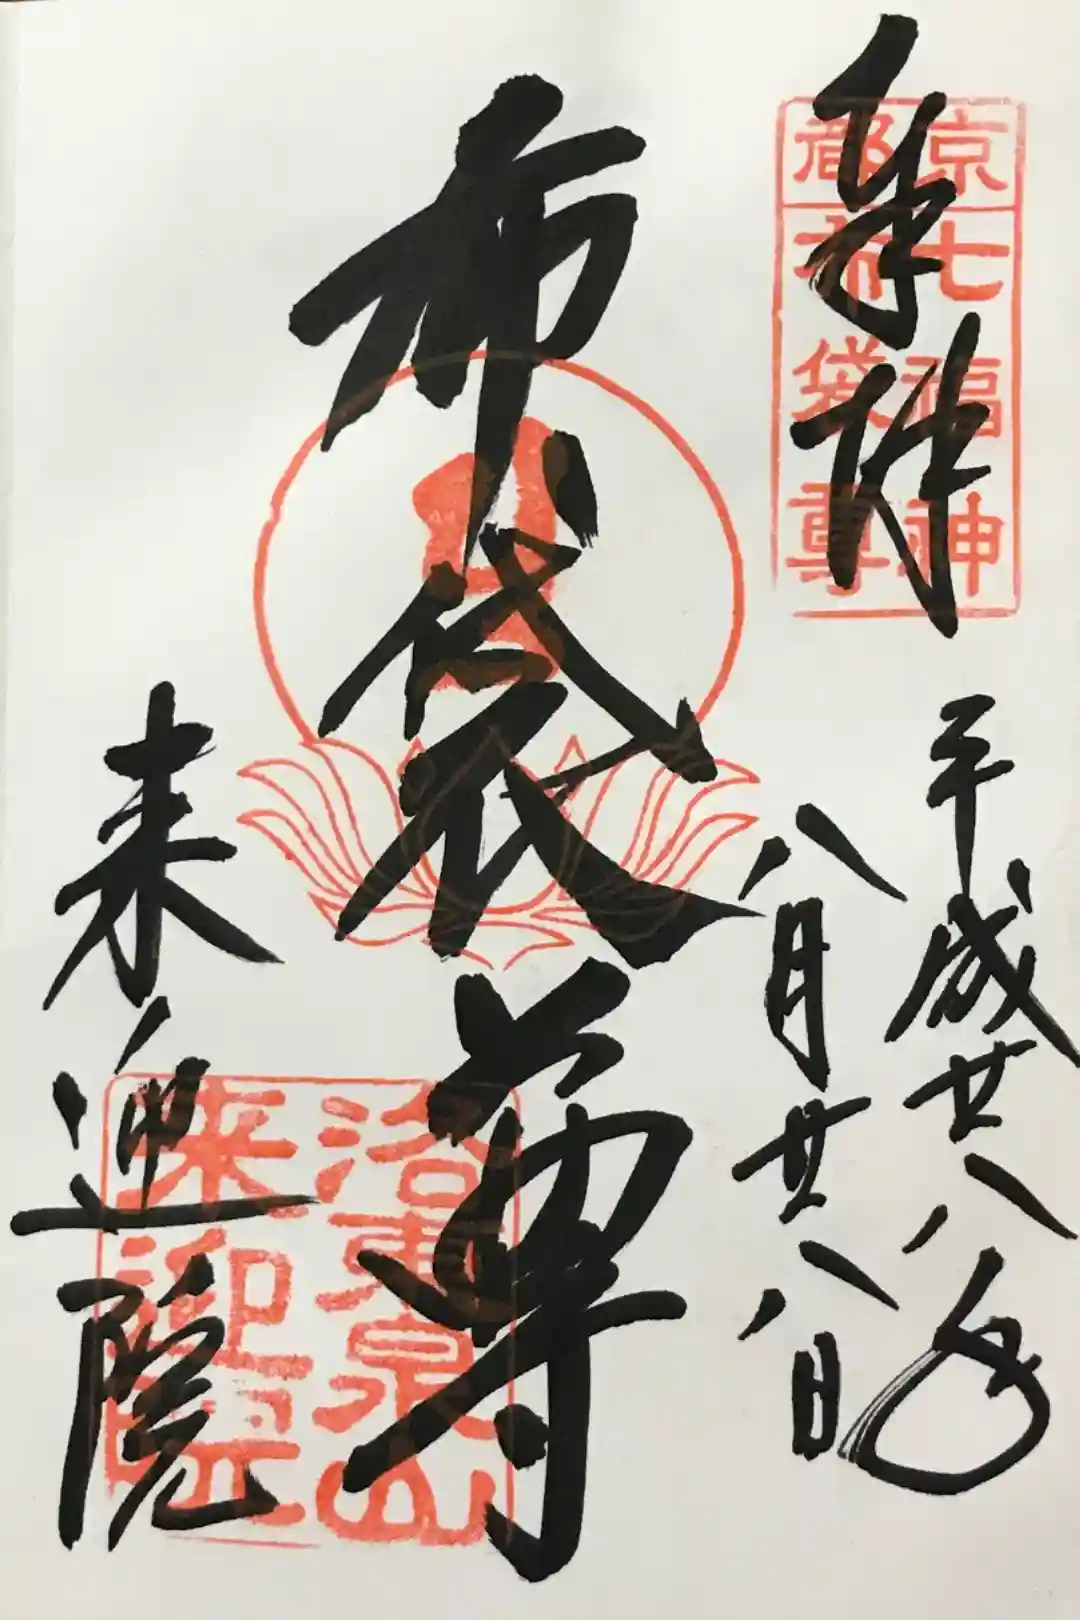 奉拝
京都
七福神
布袋尊
平成廿八年
八月廿八日
布袋尊
洛東泉山
来迎院
来迎院